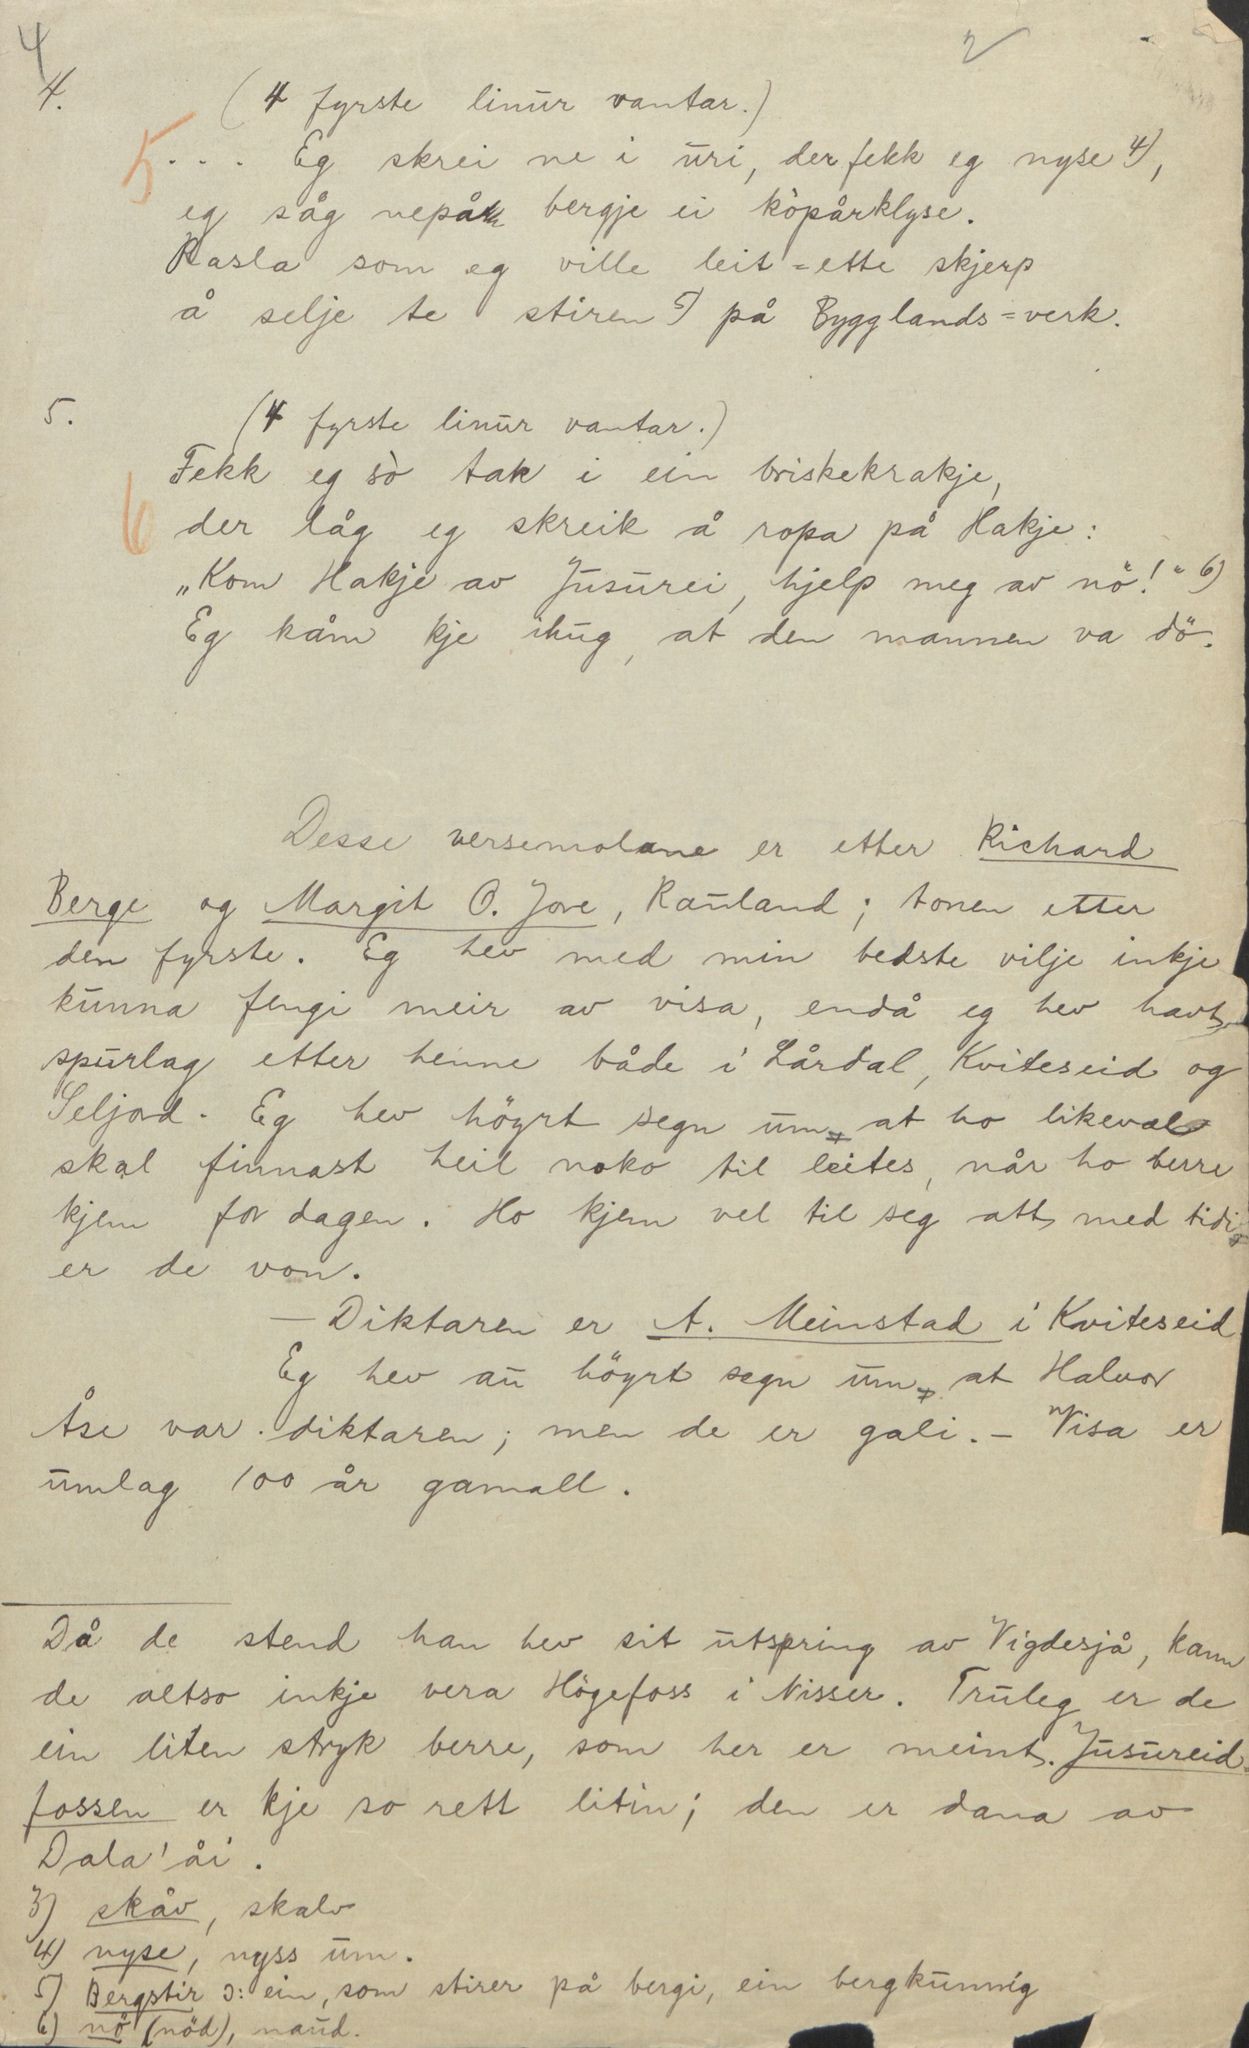 4 2
4. (4 fyrste linur vantar.)
5 . . . Eg skrei ne i uri, der fekk eg nyse 4),
eg såg nepå bergje ei kòpårklyse.
Rasla som eg ville leit=ette skjerp
å selje te stiren 5) på Bygglands=verk.
5. (4 fyrste linur vantar.)
Fekk eg sò tak i ein briskekrakje,
6 der låg eg skreik å ropa på Hakje:
„Kom Hakje av Jusurei, hjelp meg av nö!“ 6)
Eg kåm kje ihug, at den mannen va dö.
Desse versemolane er etter Richard
Berge og Margit O. Jore, Rauland; tonen etter
den fyrste. Eg hev med min bedste vilje inkje
kunna fengi meir av visa, endå eg hev havt
spurlag etter henne både i Lårdal, Kviteseid og
Seljord. Eg hev högrt segn um, at ho likeval
skal finnast heil noko til leites, når ho berre
kjem for dagen. Ho kjem vel til seg att med tidi,
er de von.
— Diktaren er A. Meinstad i Kviteseid
Eg hev au högrt segn um, at Halvor
Åse var diktaren; men de er gali. – Visa er
umlag 100 år gamall.
Då de stend han hev sit utspring av Vigdesjå, kann
de altso inkje vera Högefoss i Nisser. Truleg er de
ein liten stryk berre, som her er meint. Jusureid-
fossen er kje so rett litin; den er dana av
Dala'åi.
3) skåv, skalv
4) nyse, nyss um.
5) Bergstir ɔ: ein, som stirer på bergi, ein bergkunnig
6) nö (nöd), naud.